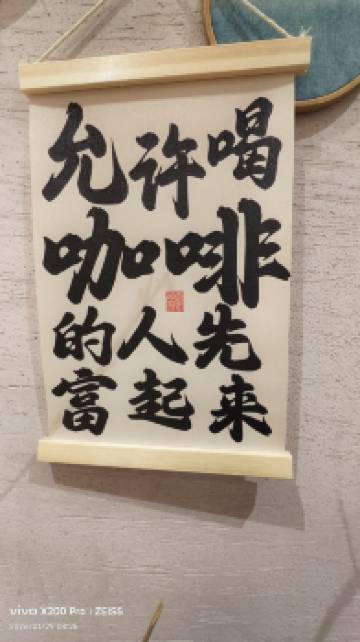 允许喝
咖啡
的人先
富起来
vivo X200 Pro | ZEISS